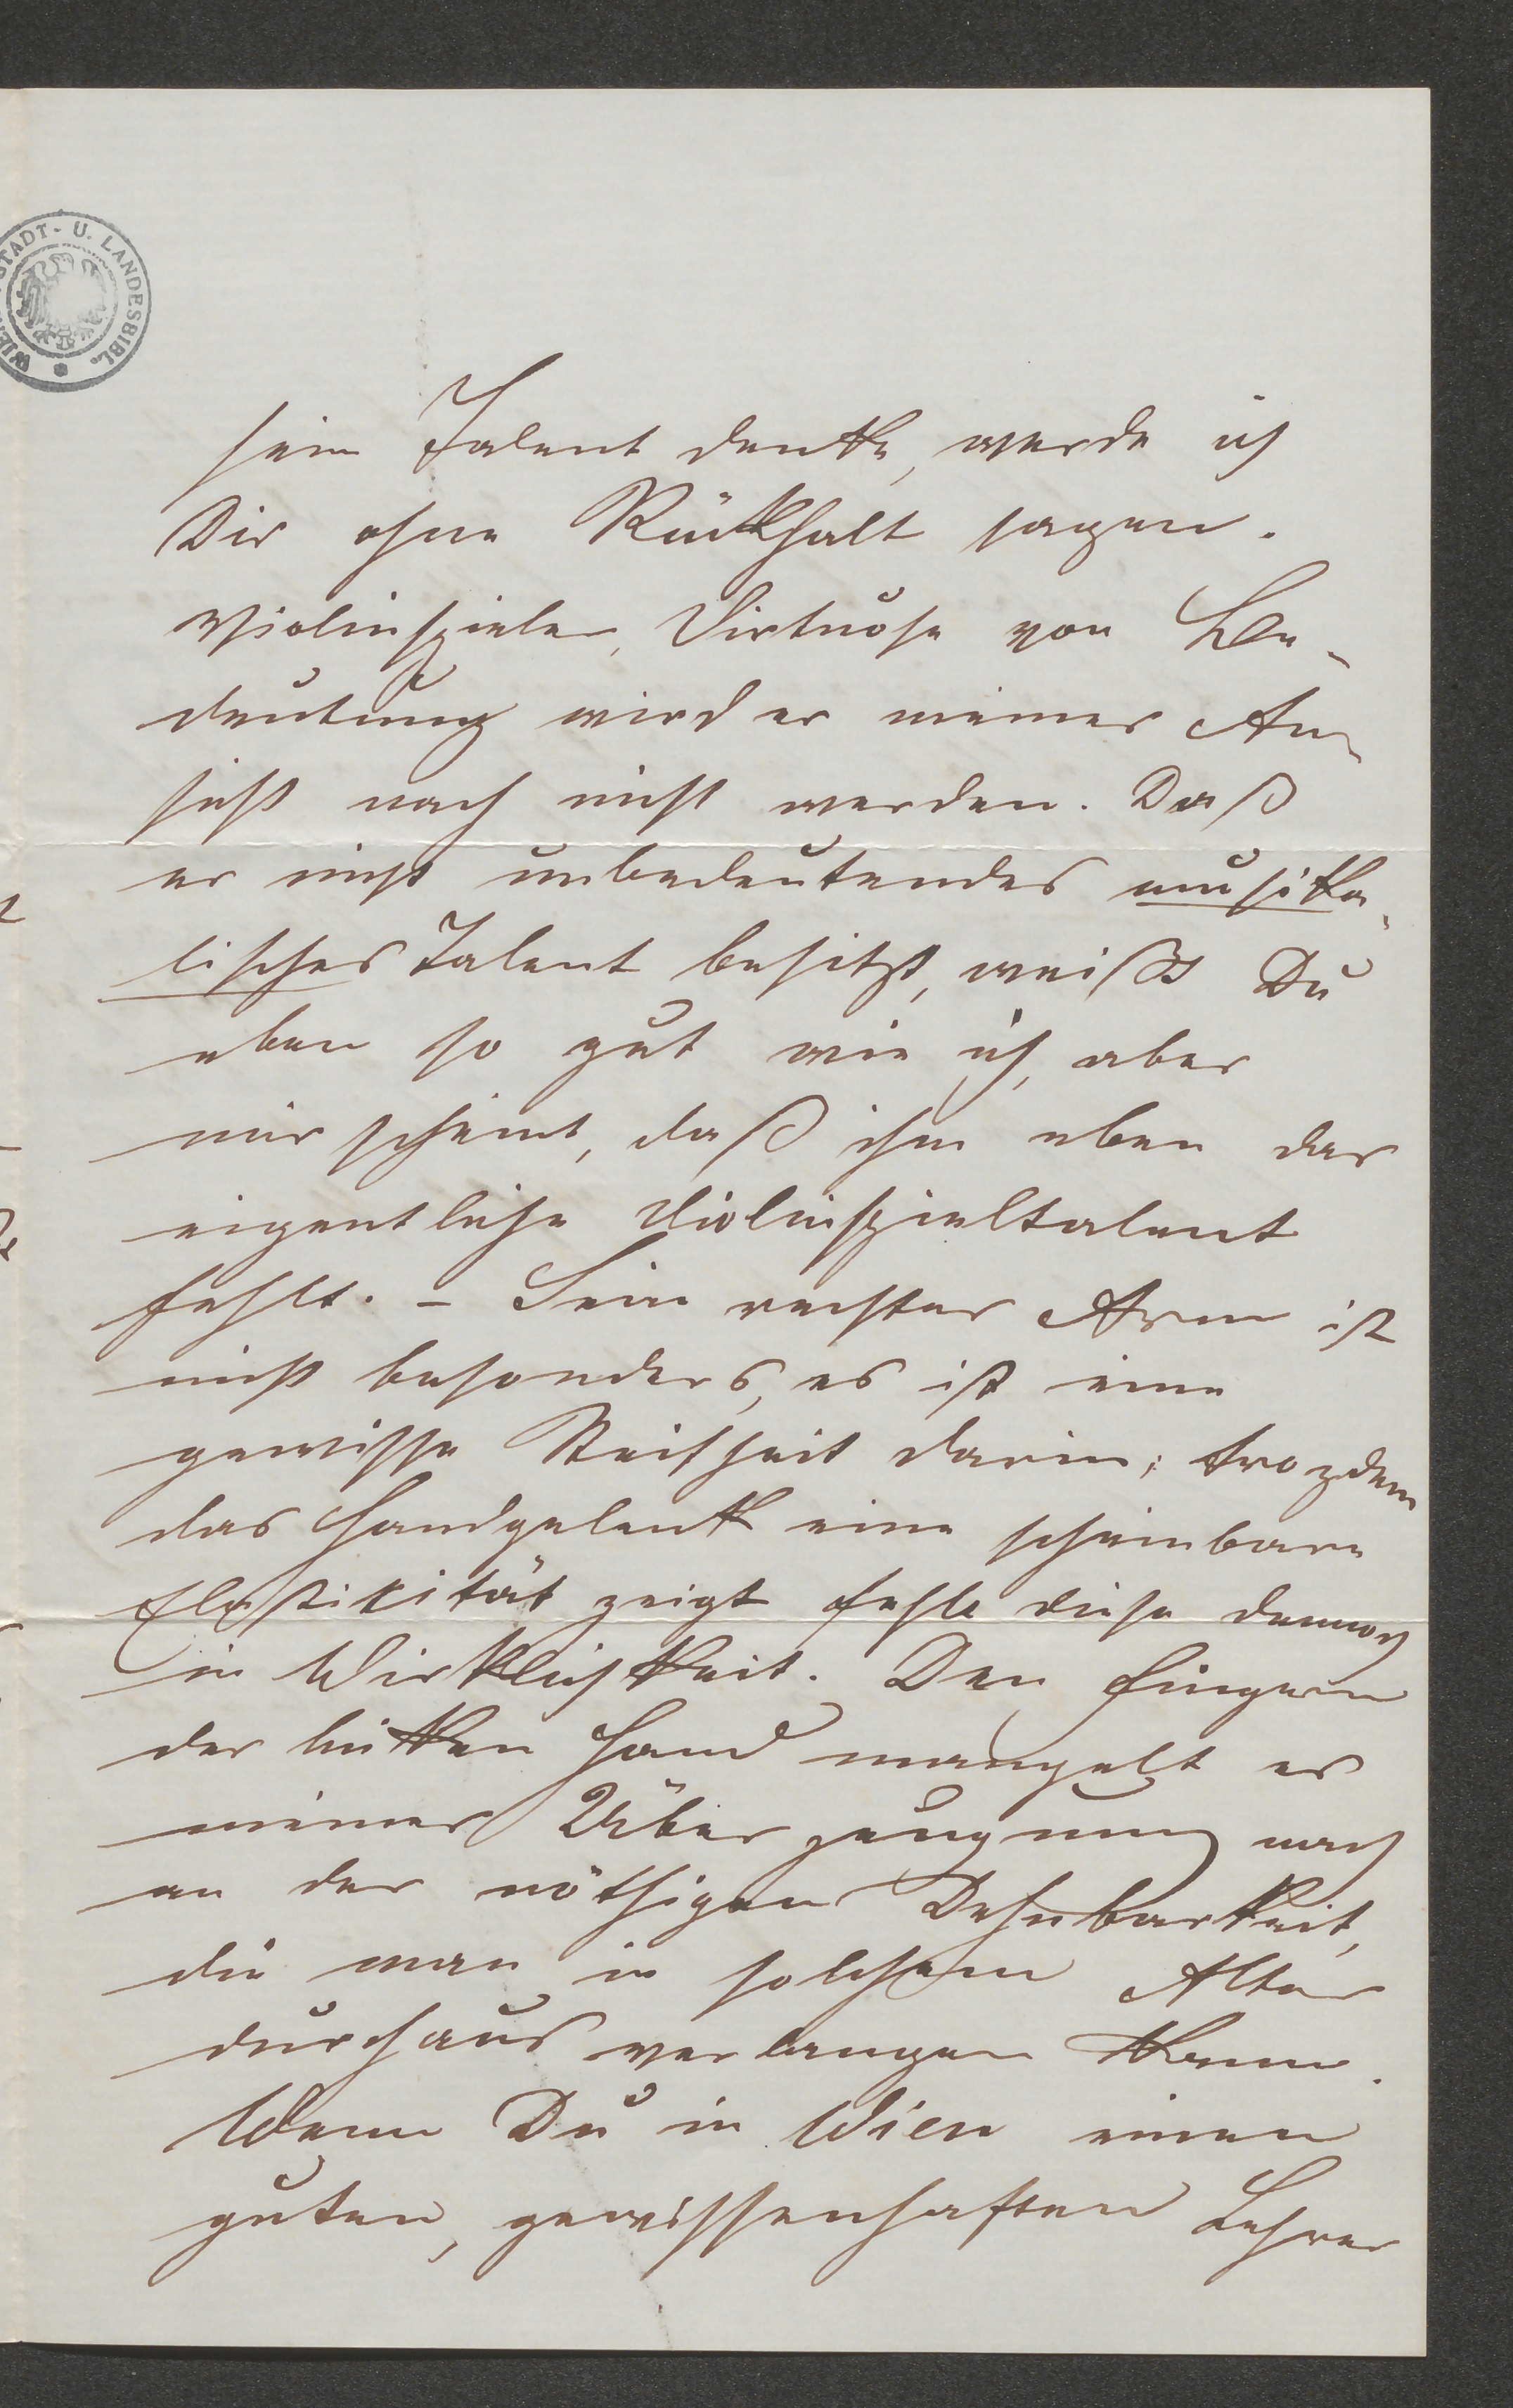 STADT- U. LANDESBIBL.
WIEN
sein Talent denke, werde ich
Dir ohne Rückhalt sagen.
Violinspieler, Virtuose von Be-
deutung wird er meiner An-
sicht nach nicht werden. Daß
er nicht unbedeutendes musika-
lisches Talent besitzt, weißt Du
eben so gut wie ich, aber
mir scheint, daß ihm eben das
eigentliche Violinspieltalent
fehlt. – Sein rechter Arm ist
nicht besonders, es ist eine
gewisse Steifheit darin; trozdem
das Handgelenk eine scheinbare
Elastizität zeigt fehlt diese dennoch
in Wirklichkeit. Den Fingern
der linken Hand mangelt es
meiner Überzeugung nach
an der nöthigen Dehnbarkeit,
die man in solchem Alter
durchaus verlangen kann.
Wenn Du in Wien einen
guten, gewissenhaften Lehrer